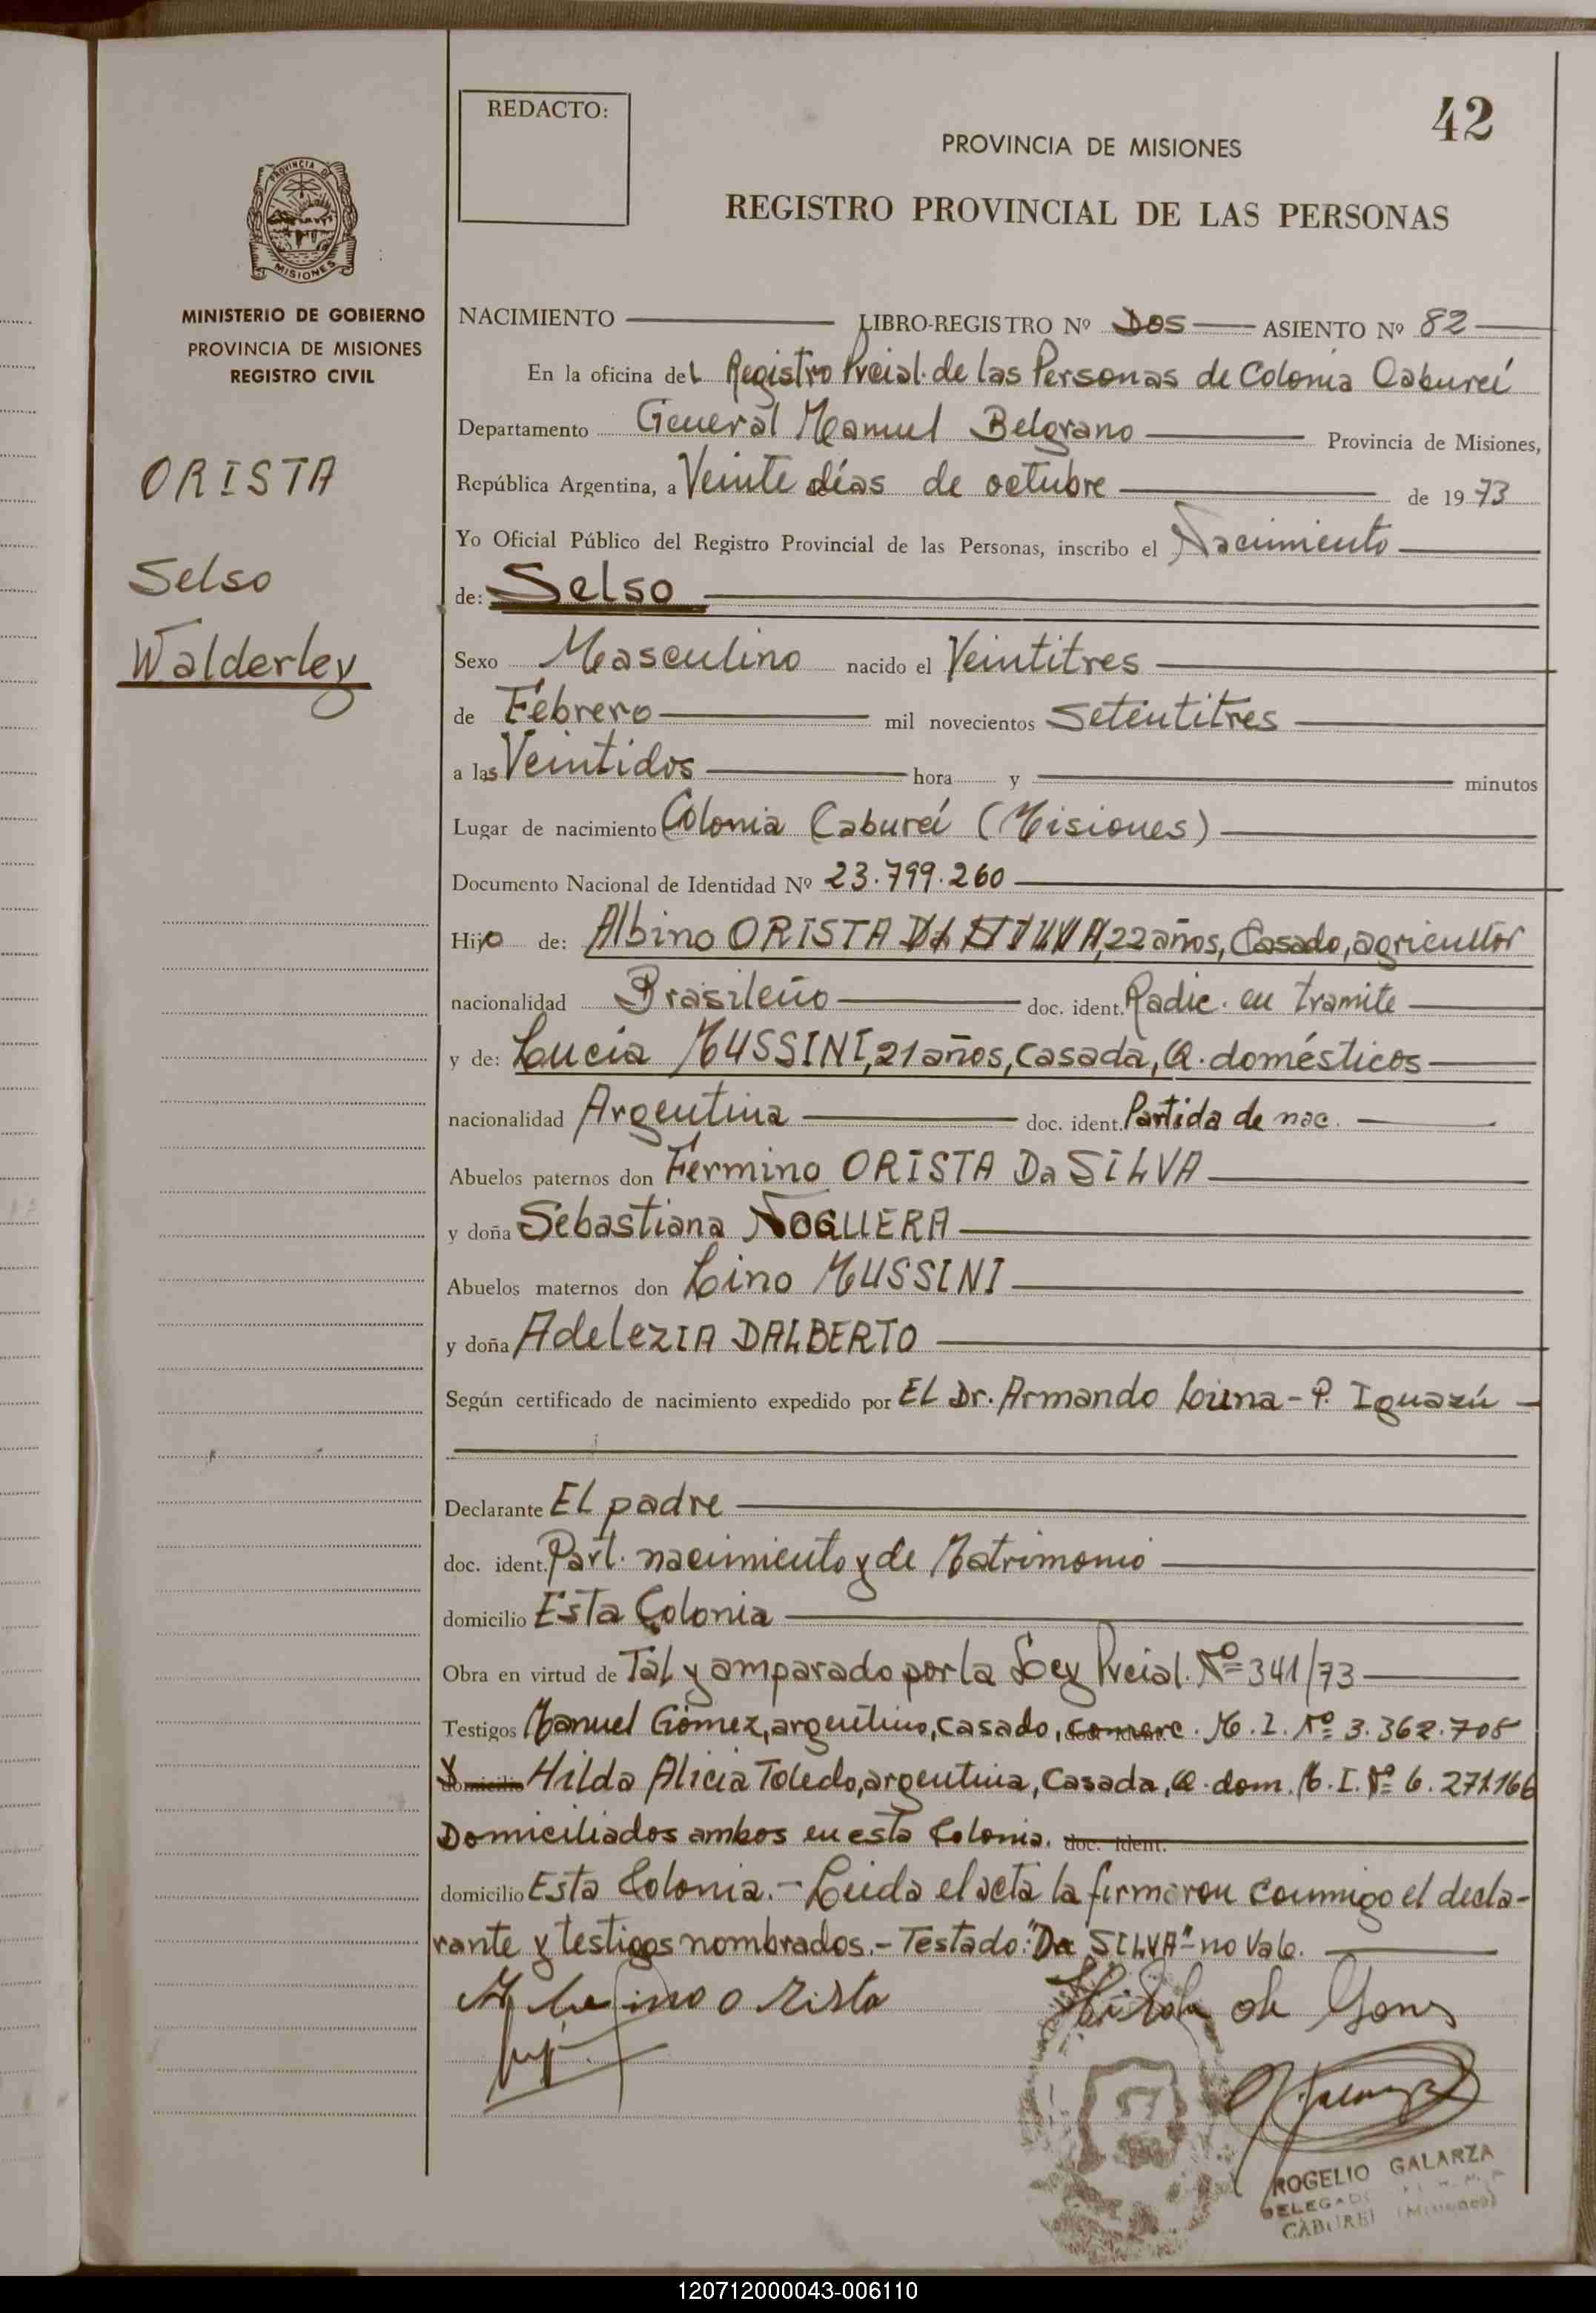 REDACTO:
42
PROVINCIA DE MISIONES
REGISTRO PROVINCIAL DE LAS PERSONAS
PROVINCIA DE
MISIONES
MINISTERIO DE GOBIERNO
PROVINCIA DE MISIONES
REGISTRO CIVIL
ORISTA
Selso
Walderley
NACIMIENTO LIBRO-REGISTRO Nº Dos ASIENTO Nº 82
En la oficina del Registro Prcial. de las Personas de Colonia Cabureí
Departamento General Manuel Belgrano Provincia de Misiones,
República Argentina, a Veinte días de octubre de 1973
Yo Oficial Público del Registro Provincial de las Personas, inscribo el Nacimiento
de: Selso
Sexo Masculino nacido el Veintitres
de Febrero mil novecientos Setentitres
a las Veintidos hora y minutos
Lugar de nacimiento Colonia Cabureí (Misiones)
Documento Nacional de Identidad Nº 23.799.260
Hijo de: Albino ORISTA Da SILVA, 22 años, Casado, agricultor
nacionalidad Brasileño doc. ident. Radic. en tramite
y de: Lucia MUSSINI, 21 años, casada, Q. domésticos
nacionalidad Argentina doc. ident. Partida de nac.
Abuelos paternos don Fermino ORISTA Da SILVA
y doña Sebastiana NOGUERA
Abuelos maternos don Lino MUSSINI
y doña AdelezIA DALBERTO
Según certificado de nacimiento expedido por El Dr. Armando Luna - P. Iguazú
Declarante El padre
doc. ident. Part. nacimiento y de Matrimonio
domicilio Esta Colonia
Obra en virtud de Tal y amparado por la Ley Prcial. Nº 341/73
Testigos Manuel Gómez, argentino, casado, comerc. M. I. Nº 3.362.708
y domicilio Hilda Alicia Toledo, argentina, casada, Q. dom. M. I. Nº 6.271.166
Domiciliados ambos en esta Colonia. doc. ident.
domicilio Esta Colonia. - Leida el acta la firmaron conmigo el decla-
rante y testigos nombrados. - Testado: "Da SILVA" - no vale.
orista
Hilda de
ROGELIO GALARZA
DELEGADO
CABUREI (Misiones)
120712000043-006110